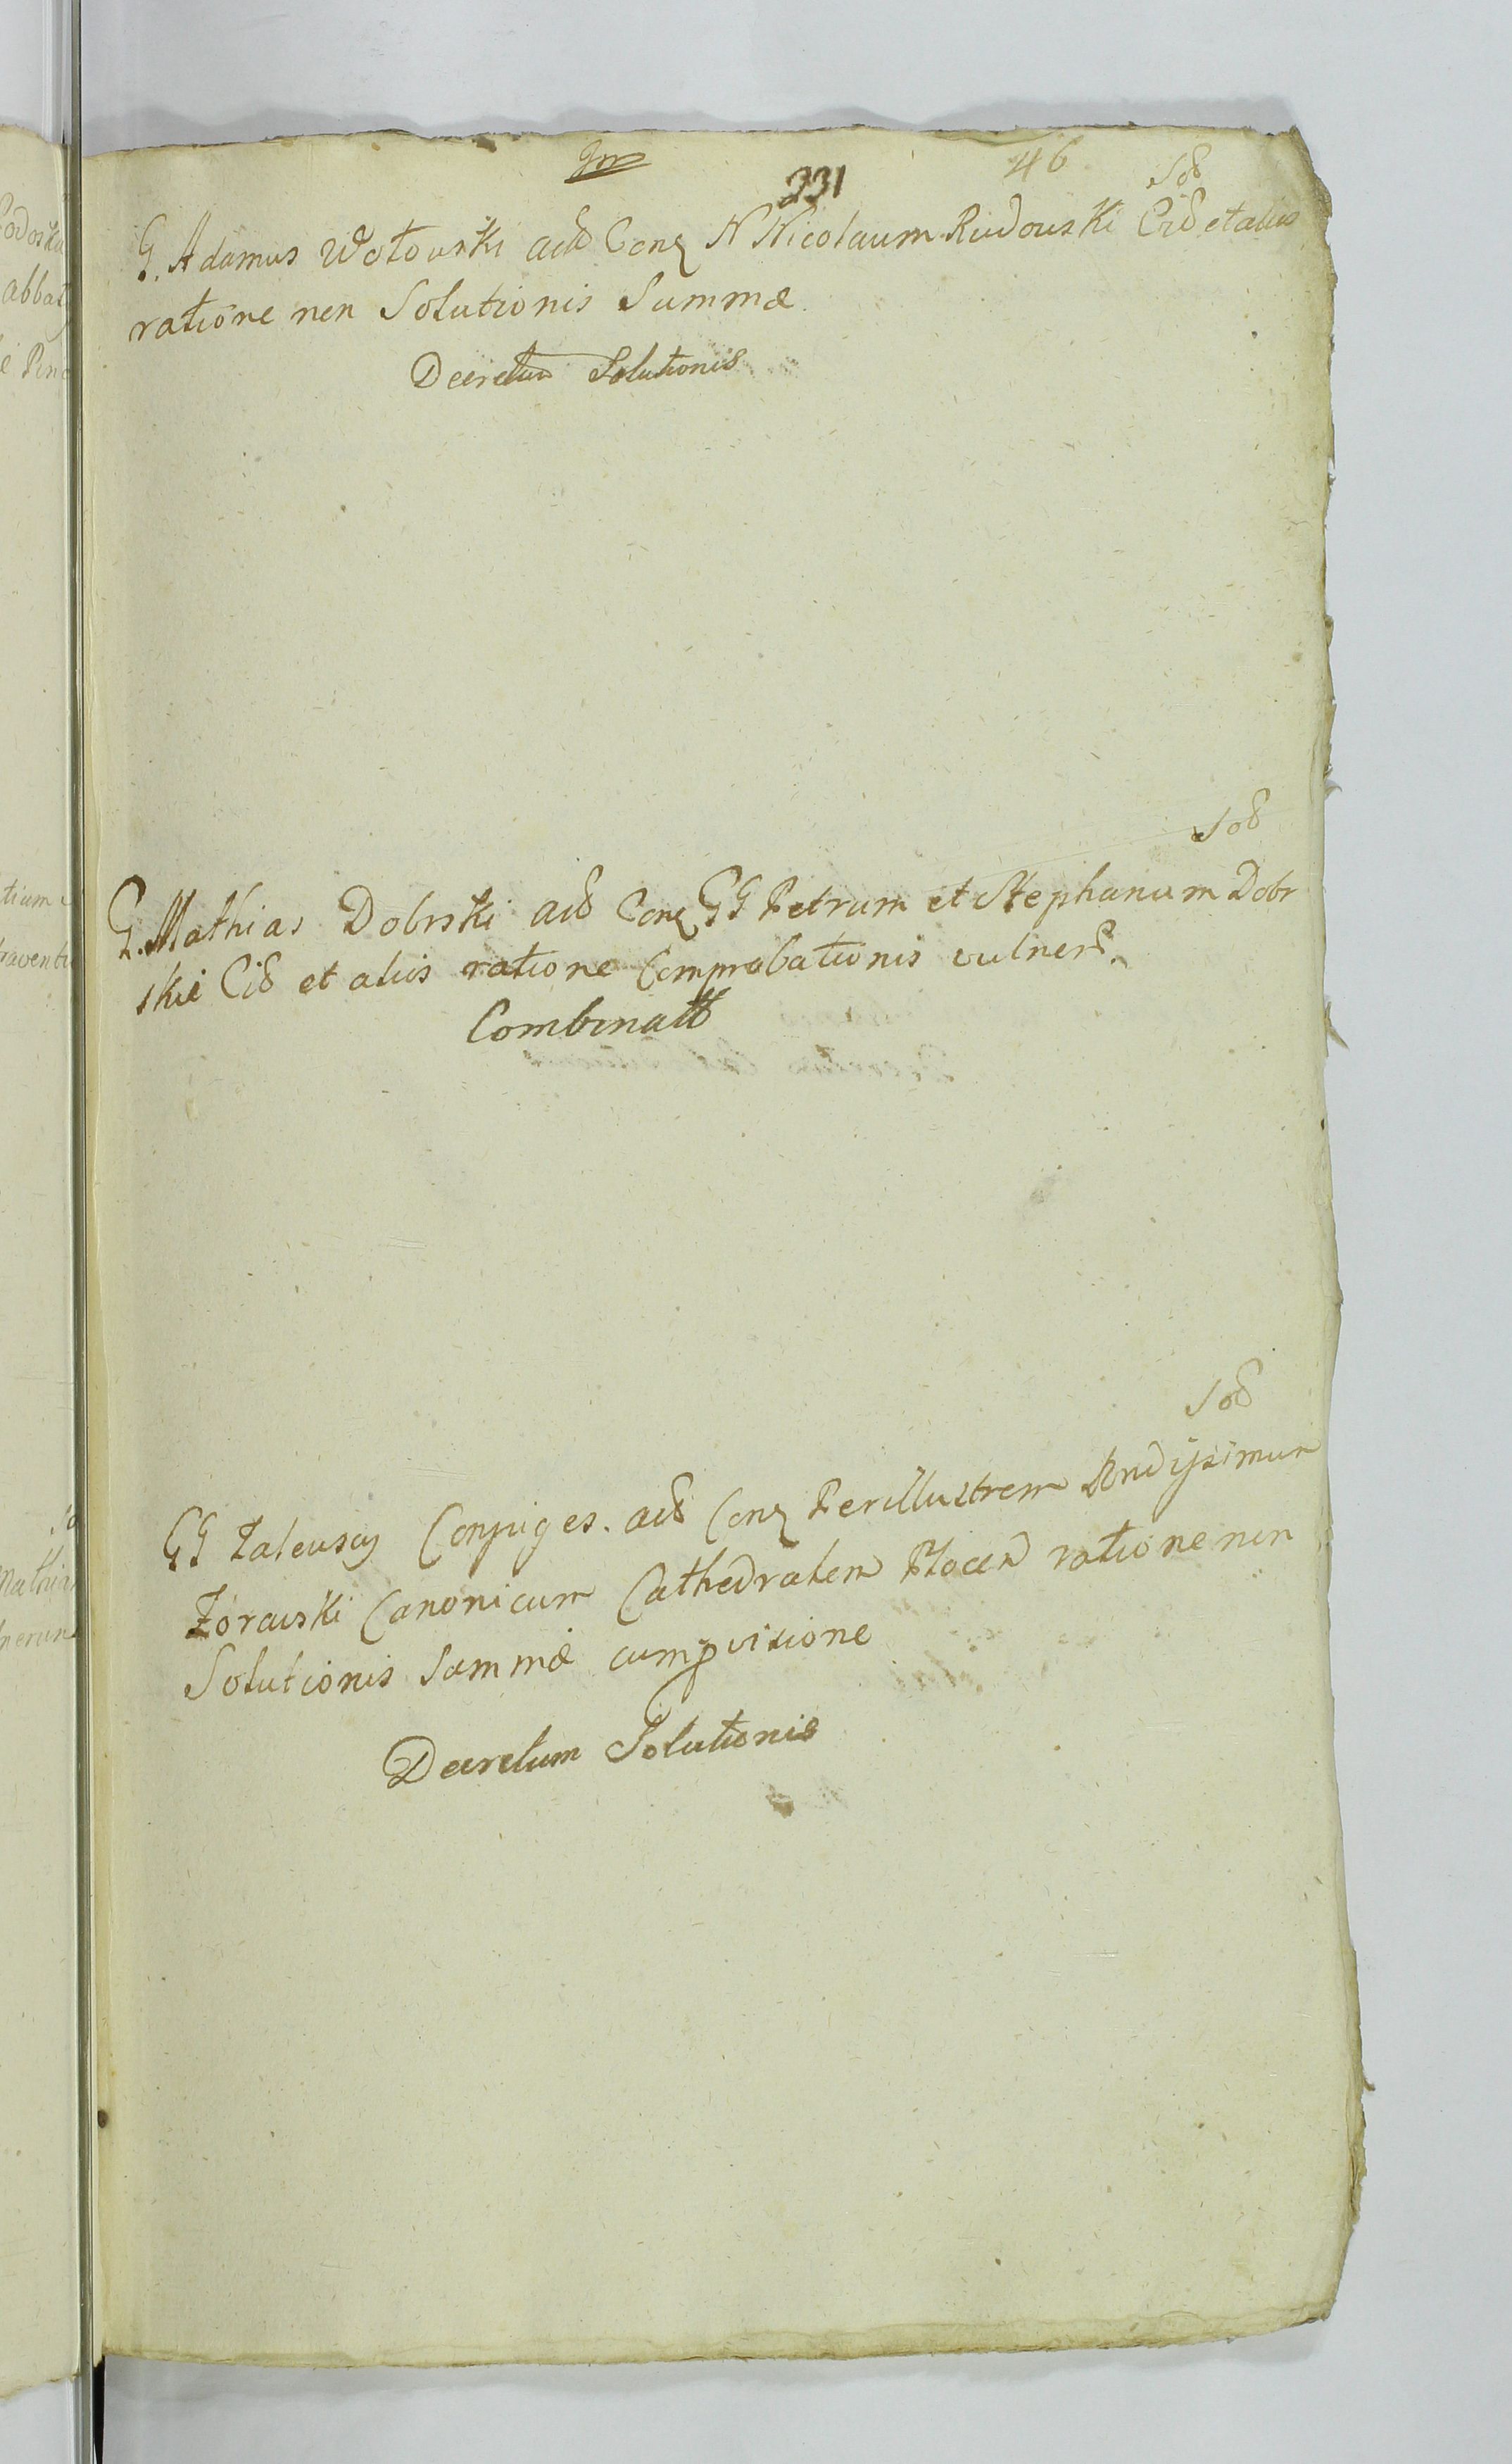 331
46
G. Adamus Wołowski ad Con N Nicolaum Rudowski Cid et alios
ratione non Solutionis Summæ
Decretum Solutionis
Sod
G. Mathias Dobrski ad Con GG Petrum et Stephanum Dobr
skie Cid et alios ratione Comprobationis vulner
Combinatt
Sod
GG Zalewscy Conjuges ad Con Perillustrem Rndissimum
Zorawski Canonicum Cathedralem Płocen ratione non
Solutionis Summæ cum pvisione
Decretum Solutionis